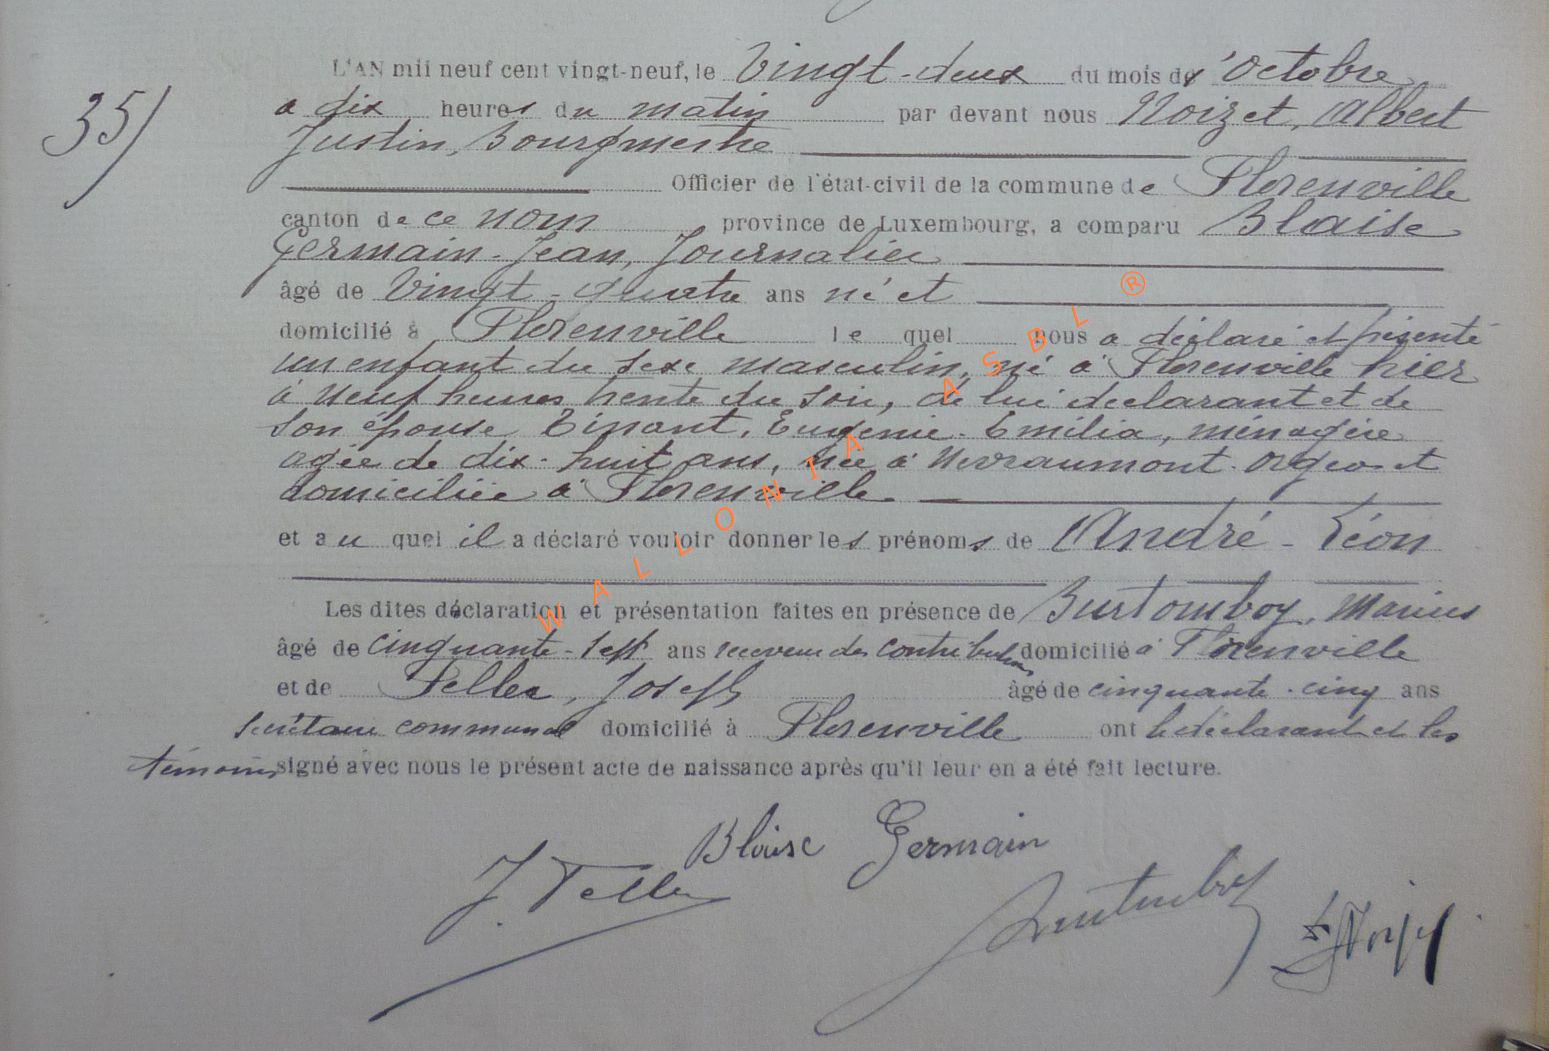 L'AN mil neuf cent vingt-neuf, le Vingt-deux du mois d'Octobre
35/
a dix heures du matin par devant nous Noizet, Albert
Justin, Bourgmestre
Officier de l'état-civil de la commune de Florenville
canton de ce nom province de Luxembourg, a comparu Blaise
Germain-Jean, Journalier
âgé de Vingt-quatre ans né et
domicilié à Florenville lequel nous a déclaré et présenté
un enfant du sexe masculin, né à Florenville hier
à neuf heures trente du soir, de lui déclarant et de
son épouse Tinant, Eugénie-Emilia, ménagère
agée de dix-huit ans, née à Nevraumont-Orgeo et
domiciliée à Florenville
et au quel il a déclaré vouloir donner les prénoms de André-Léon
Les dites déclaration et présentation faites en présence de Burtomboy, Marius
âgé de cinquante-sept ans receveur des contributions domicilié à Florenville
et de Feller, Joseph âgé de cinquante-cinq ans
secrétaire communal domicilié à Florenville ont le déclarant et les
témoins signé avec nous le présent acte de naissance après qu'il leur en a été fait lecture.
Blaise Germain
J. Feller
Burtomboy
Noizet
WALLONIA ASBL ®